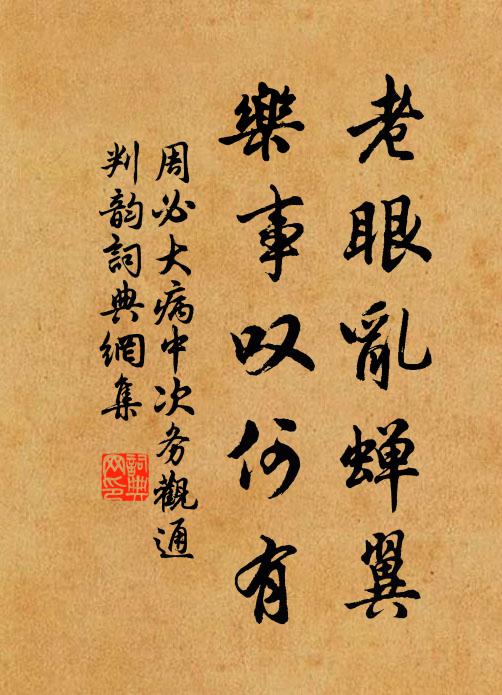 老眼亂蝉翼
樂事叹何有
周必大病中次务觀通
判韵詞典網集
詞典网印